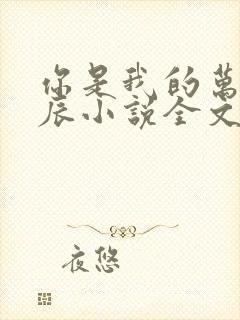 你是我的萬
辰小說全文
夜悠